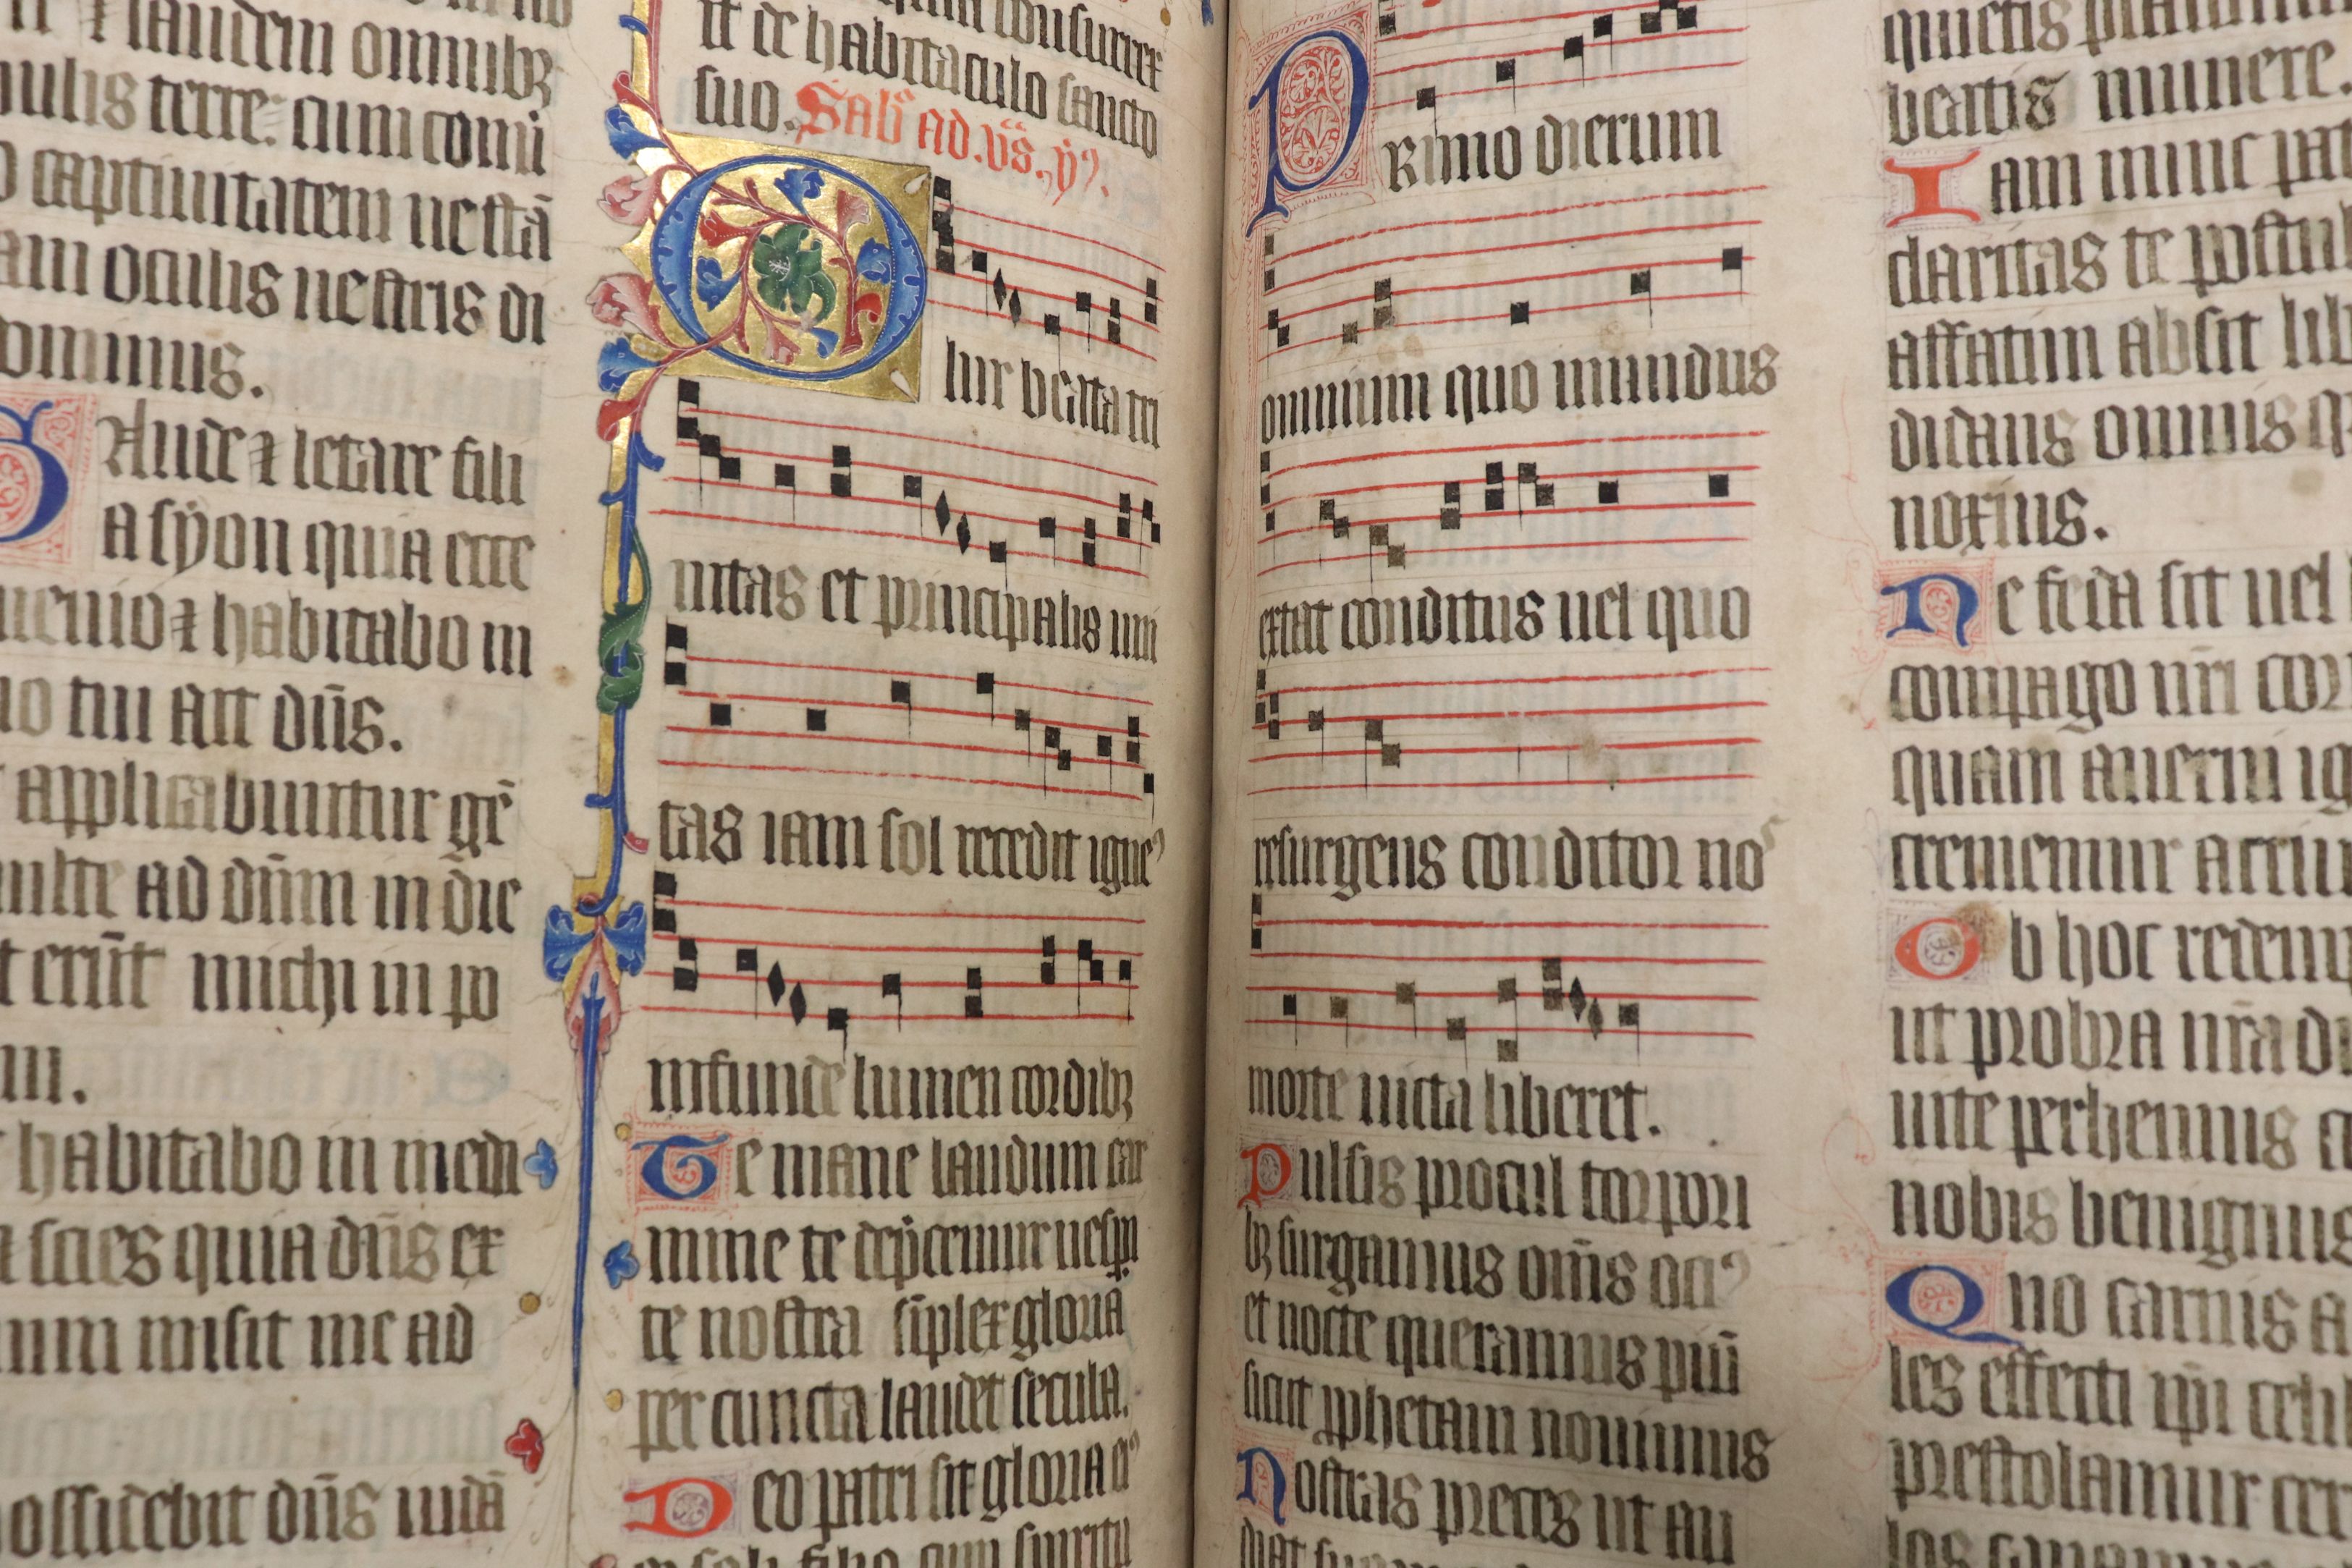 et laudem omnibꝫ
pulis terre: cum conũ
o captiuitatem uestrã
am oculis uestris di
ominus.
Aude et letare fili
a syon quia ecce
uenio et habitabo in
io tui ait dñs.
applicabuntur gẽ
multe ad dñm in die
t erũt michi in po
m.
habitabo in medi
scies quia dñs ex
uum misit me ad
ossidebit dñs iudã
consurrex
it de habitaculo sancto
suo. Sabb̃o ad. vs̃. ẏ.
O lux beata tri
nitas et principalis uni
tas iam sol recedit igneꝰ
infunde lumen cordibꝫ
Te mane laudum car
mine te dep̃cemur uesp̃i
te nostra sup̃lex gloria
per cuncta laudet secula.
Deo patri sit gloria eiꝰ
soli filio cum spiritu
PRimo dierum
omnium quo mundus
extat conditus uel quo
resurgens conditor nos
morte uicta liberet.
Pulsis procul torpori
bꝫ surgamus om̃s ociꝰ
et nocte queramus piũ
sicut ꝓphetam nouimus
Nostras preces ut au
diat su
quietis
beatis munere.
Iam nunc pat
claritas te postul
affatim absit lib
didans omnis q
noxius.
Ne feda sit uel l
compago nr̃i cor
quam auerni ig
crememur acriu
Ob hoc redemp
ut probra nr̃a d
uite perhennis c
nobis benignus
Quo carnis a
les effecti ip̃i celi
prestolamur cer